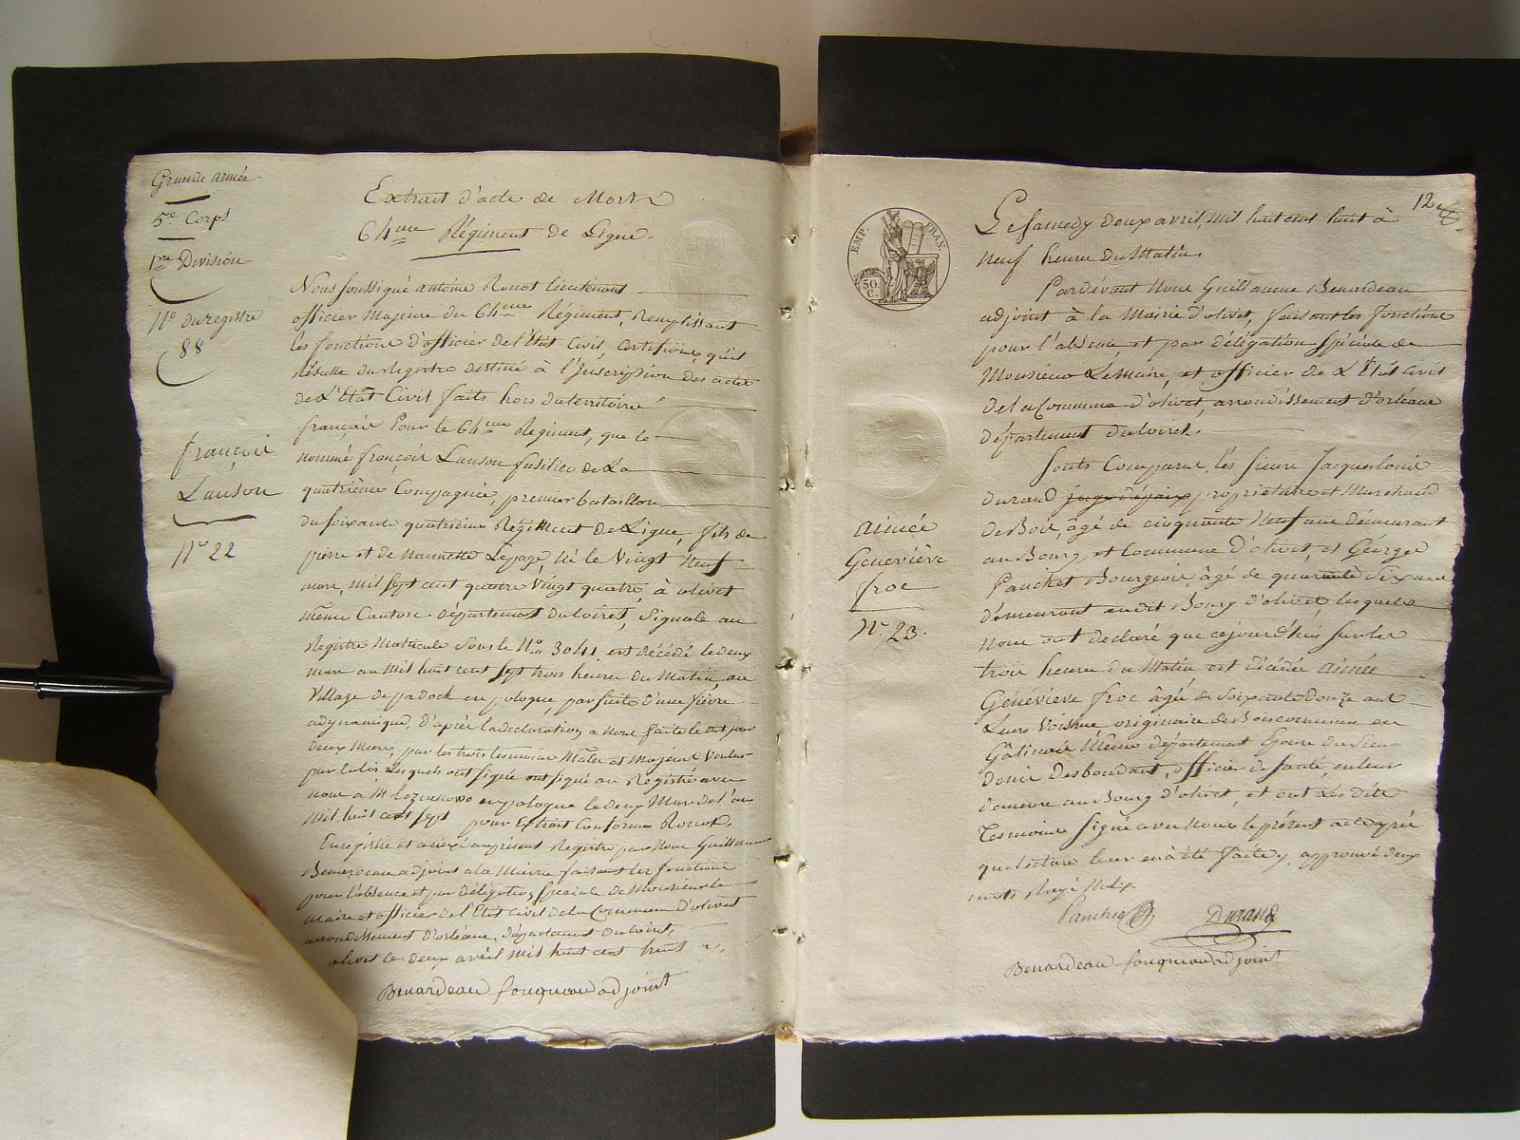 Grande armée
5e Corps
1re Division
No du registre
88
françois
Lauson
No 22
Extrait d'acte de Mort
64eme Régiment de Ligne.
Nous soussigné antoine Renot lieutenant
officier Majeure du 64eme Régiment, Remplissant
les fonctions d'officier de l'Etat Civil, certifions qu'il
résulte du Registre destiné à l'Inscription des actes
de L'Etat Civil faits hors du territoire
français Pour le 64eme Régiment, que le
nommé françois Lauson fusilier de La
quatrième Compagnie, premier bataillon
du soixante quatrième Régiment de Ligne, fils de
pierre et de Nannette Lepage, Né le Vingt Neuf
mars, mil sept cent quatre Vingt quatre, à olivet
même Canton département du Loiret, Signalé au
Registre Matricule sous le No 3041 est décédé le deux
mars an mil huit cent sept trois heures du Matin, au
Village de padock en pologne, par suite d'une fièvre
adynamique, d'après la déclaration a nous faite le dit jour
deux Mars, par les trois témoins Mâles et Majeurs Voulus
par la loi Lesquels ont signé au Registre avec
nous à en pologne le deux Mars de l'an
Mil huit cent sept pour Extrait Conforme Renot.
Enregistré et au présent Registre par Nous Guillaume
Benardeau adjoint a la Mairie faisant les fonctions
pour l'absence et par délégation spéciale de Monsieur le
Maire et officier de l'Etat Civil de la Commune d'olivet
arrondissement d'orléans, département du Loiret,
olivet le deux avril mil huit cent huit
Benardeau fouqueau adjoint
12
EMP. FRAN.
50
C.
aimée
Geneviève
froc
No 23.
Le samedy deux avril, mil huit cent huit à
Neuf heures du Matin.
Pardevant Nous Guillaume Benardeau
adjoint à la Mairie d'olivet, faisant les fonctions
pour l'absence et par délégation spéciale de
Monsieur Le Maire, et officier de L'Etat Civil
de la Commune d'olivet, arrondissement d'orléans
département du Loiret.
Sont Comparus, les sieurs Jacques Louis
durand juge de paix propriétaire et Marchand
de Bois, âgé de cinquante Neuf ans demeurant
au Bourg et Commune D'olivet, et Georges
Panchet Bourgeois âgé de quarante Six ans
demeurant au dit Bourg d'olivet, lesquels
nous ont déclaré que cejourd'hui sur les
trois heures du Matin est décédée aimée
Geneviève froc âgée de soixante Douze ans
Leurs Voisine originaire de Boiscommun en
Gâtinois Même département Epouse du Sieur
Denis Desboudant, officier de Santé, en leur
demeure au Bourg d'olivet, et ont Les dits
Temoins signé avec Nous le présent acte après
que lecture leur en à été faite, approuvé deux
mots rayé Nuls
Panchet Durand
Benardeau fouqueau adjoint